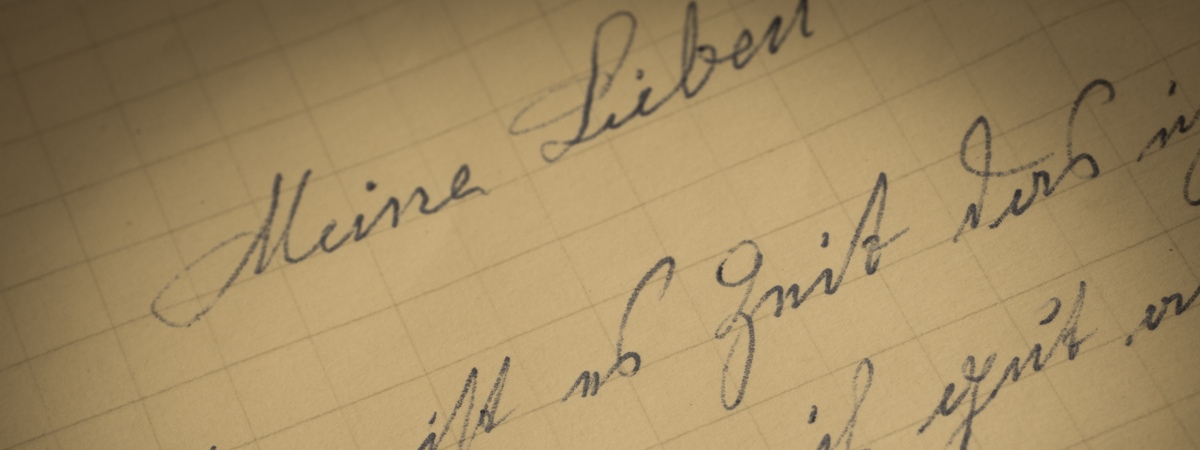 Meine Lieben
ist es Zeit das
ich gut